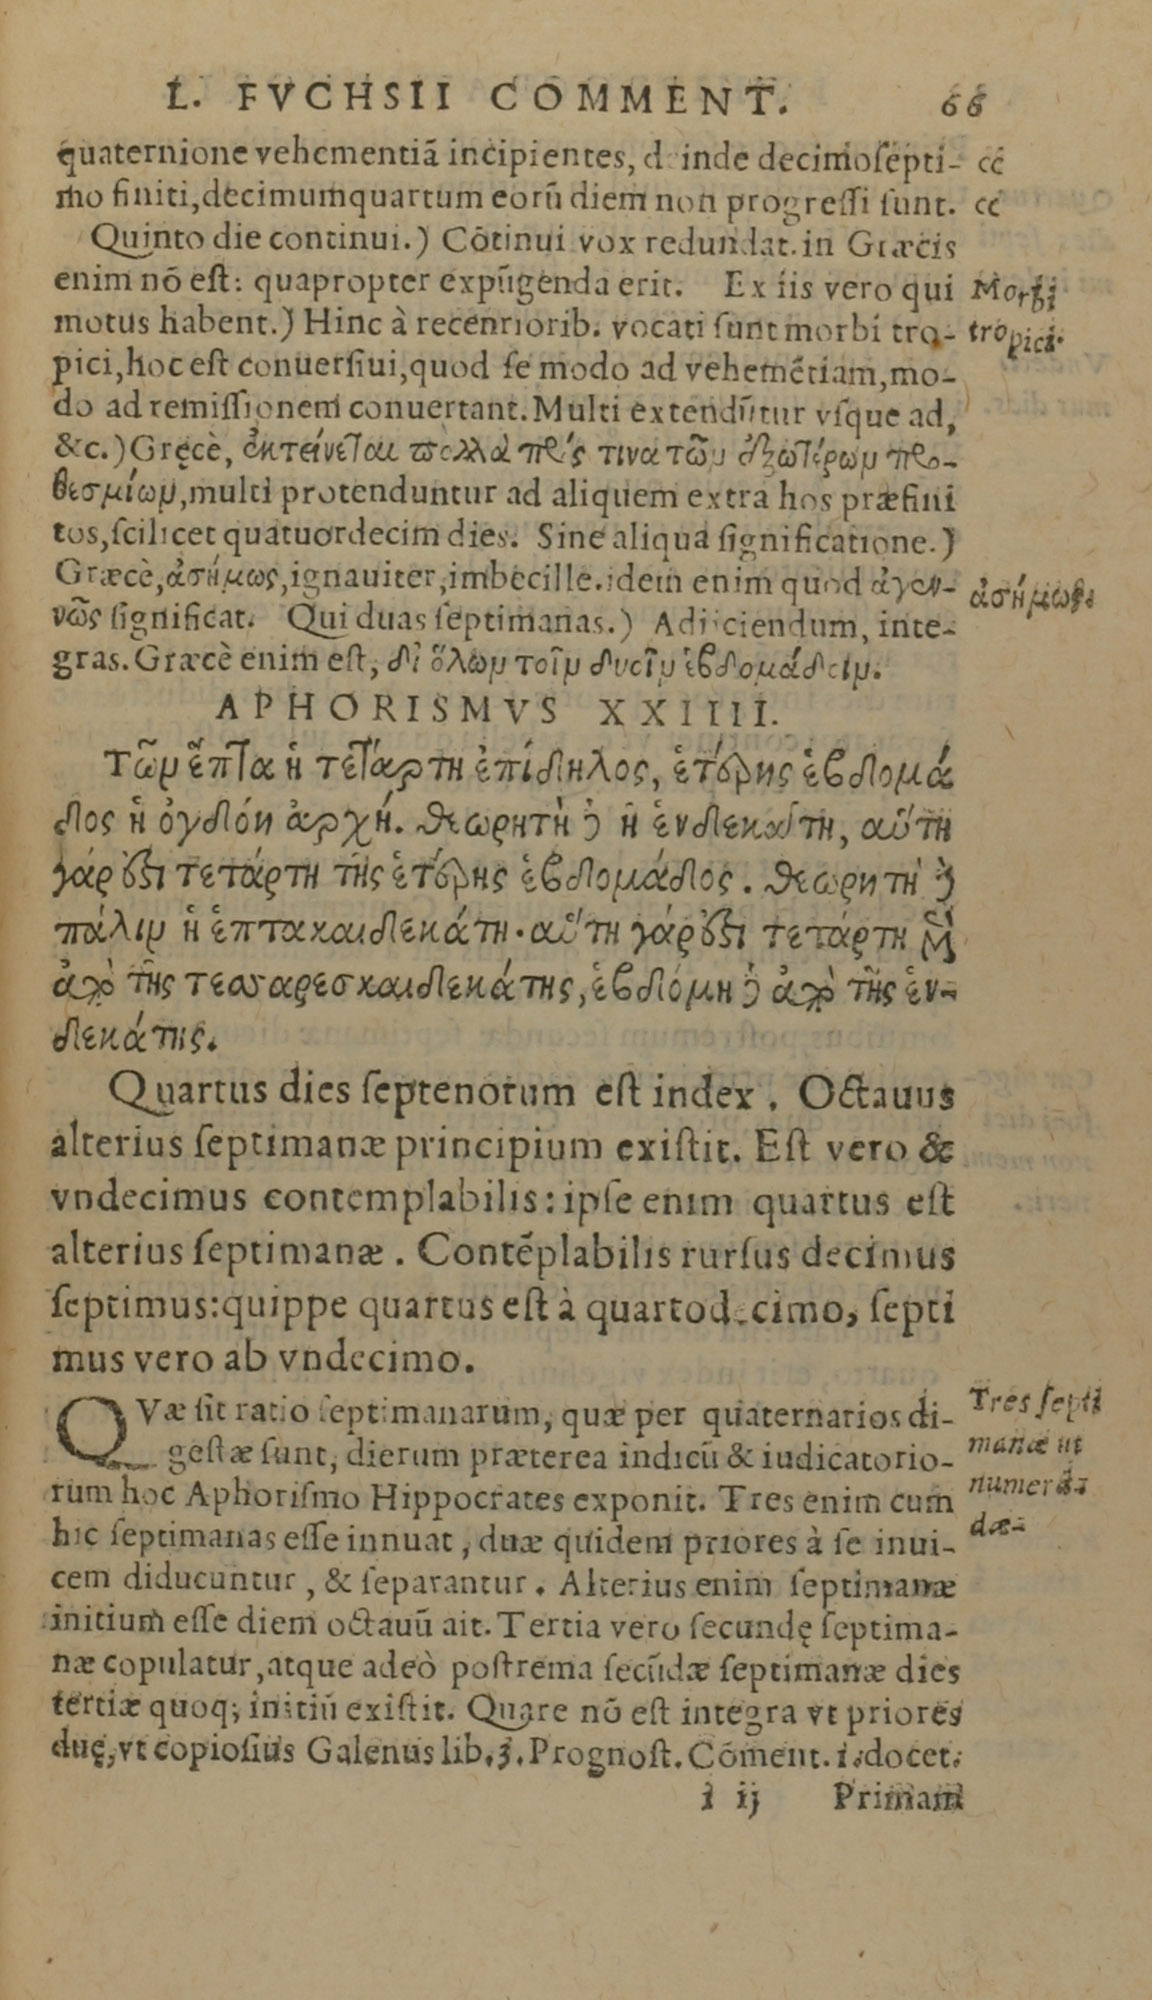 L. FVCHSII COMMENT. 66
quaternione vehementiã incipientes, deinde decimosepti- cc
mo finiti, decimumquartum eorũ diem non progressi sunt. cc
Quinto die continui.) Cõtinui vox redundat. in Græcis
enim nõ est: quapropter expũgenda erit. Ex iis vero qui Morbi
motus habent.) Hinc à recentiorib. vocati sunt morbi tro- tropici.
pici, hoc est conuersiui, quod se modo ad vehemẽtiam, mo-
do ad remissionem conuertant. Multi extendũtur vsque ad,
&c.) Gręcè, ἐκτείνεται πολλὰ πρός τινα τῶν ἐξωτέρων προ-
θεσμίων, multi protenduntur ad aliquem extra hos præfini
tos, scilicet quatuordecim dies. Sine aliqua significatione.)
Græcè, ἀσήμως, ignauiter, imbecille. idem enim quod ἀγεν- ἀσήμως.
νῶς significat. Qui duas septimanas.) Adijciendum, inte-
gras. Græcè enim est, δι ὅλων τοῖν δυσῖν ἑβδομάδειν.
APHORISMVS XXIIII.
Τῶν ἑπτα ἡ τετάρτη ἐπίδηλος, ἑτέρης ἑβδομά
δος ἡ ὀγδόη ἀρχή. θεωρητὴ δὲ ἡ ἑνδεκάτη, αὕτη
γάρ ἐστι τετάρτη τῆς ἑτέρης ἑβδομάδος. θεωρητὴ δὲ
πάλιν ἡ ἑπτακαιδεκάτη. αὕτη γάρ ἐστι τετάρτη μὲν
ἀπὸ τῆς τεσσαρεσκαιδεκάτης, ἑβδόμη δὲ ἀπὸ τῆς ἑν-
δεκάτης.
Quartus dies septenorum est index. Octauus
alterius septimanæ principium existit. Est vero &
vndecimus contemplabilis: ipse enim quartus est
alterius septimanæ. Contẽplabilis rursus decimus
septimus: quippe quartus est à quartodecimo, septi
mus vero ab vndecimo.
QVæ sit ratio septimanarum, quæ per quaternarios di- Tres septi
gestæ sunt, dierum præterea indicũ & iudicatorio- manæ ut
rum hoc Aphorismo Hippocrates exponit. Tres enim cum numerã-
hic septimanas esse innuat, duæ quidem priores à se inui- dæ-
cem diducuntur, & separantur. Alterius enim septimanæ
initium esse diem octauũ ait. Tertia vero secundę septima-
næ copulatur, atque adeò postrema secũdæ septimanæ dies
tertiæ quoq; initiũ existit. Quare nõ est integra vt priores
duę, vt copiosius Galenus lib. 3. Prognost. Cõment. i. docet.
i ij Primam